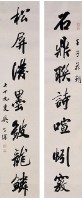 石鼎聯詩喧蚓竅
松屏潑墨皴龍鱗